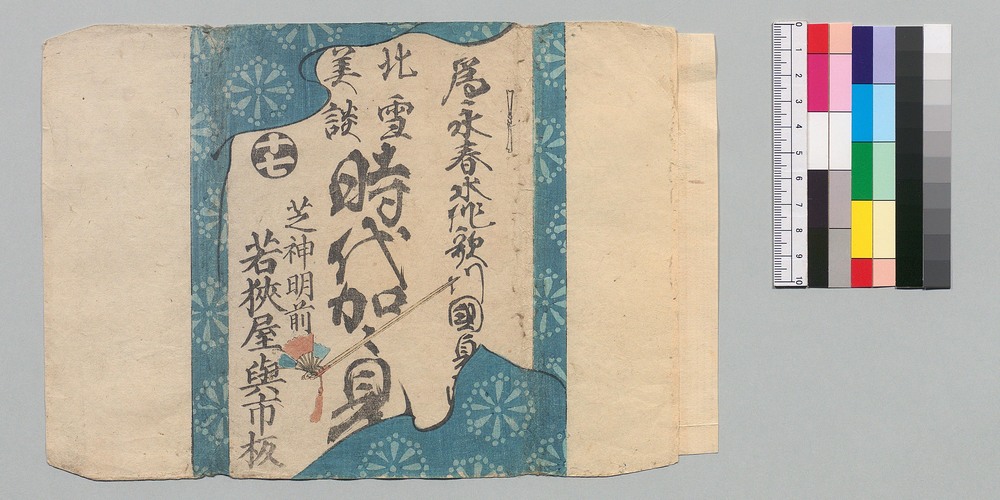 為永春水作 歌川國貞画
北雪
美談
時代加ゞ見
芝神明前
若狹屋與市板
0 1 2 3 4 5 6 7 8 9 10